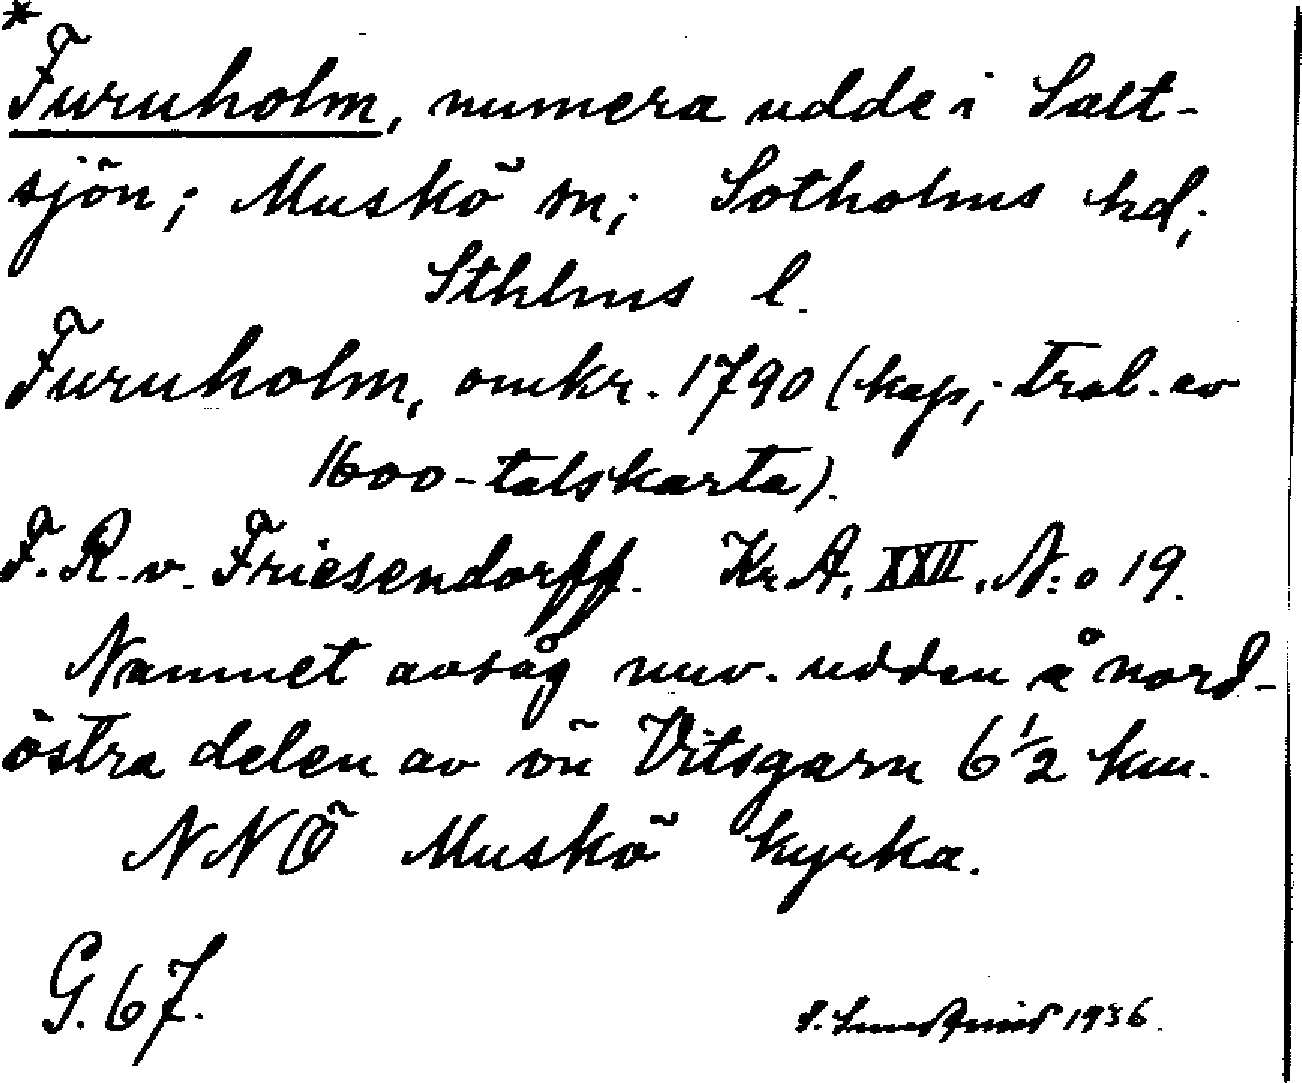 *
Furuholm, numera udde i Salt-
sjön; Muskö sn; Sotholms hd;
Sthlms l.
Furuholm, omkr. 1790 (kap; trol. av
1600-talskarta).
F. R. v. Friesendorff. Kr. A. XXII. N:o 19.
Namnet avsåg nuv. udden å nord-
östra delen av ön Vitsgarn 6 1/2 km.
NNÖ Muskö kyrka.
G. 67.
1936.